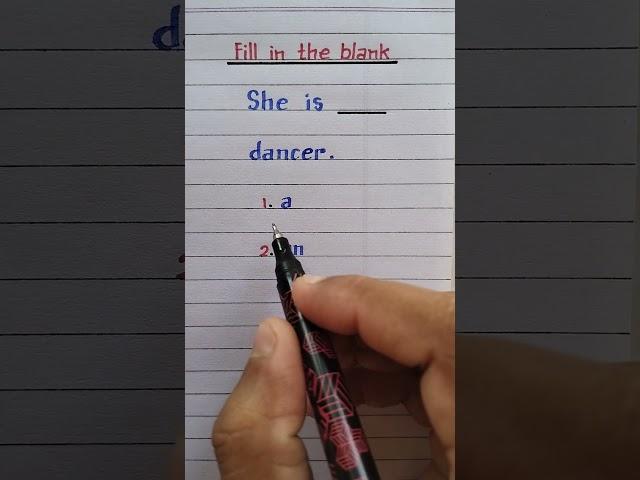 Fill in the blank
She is ____
dancer.
1. a
2. n